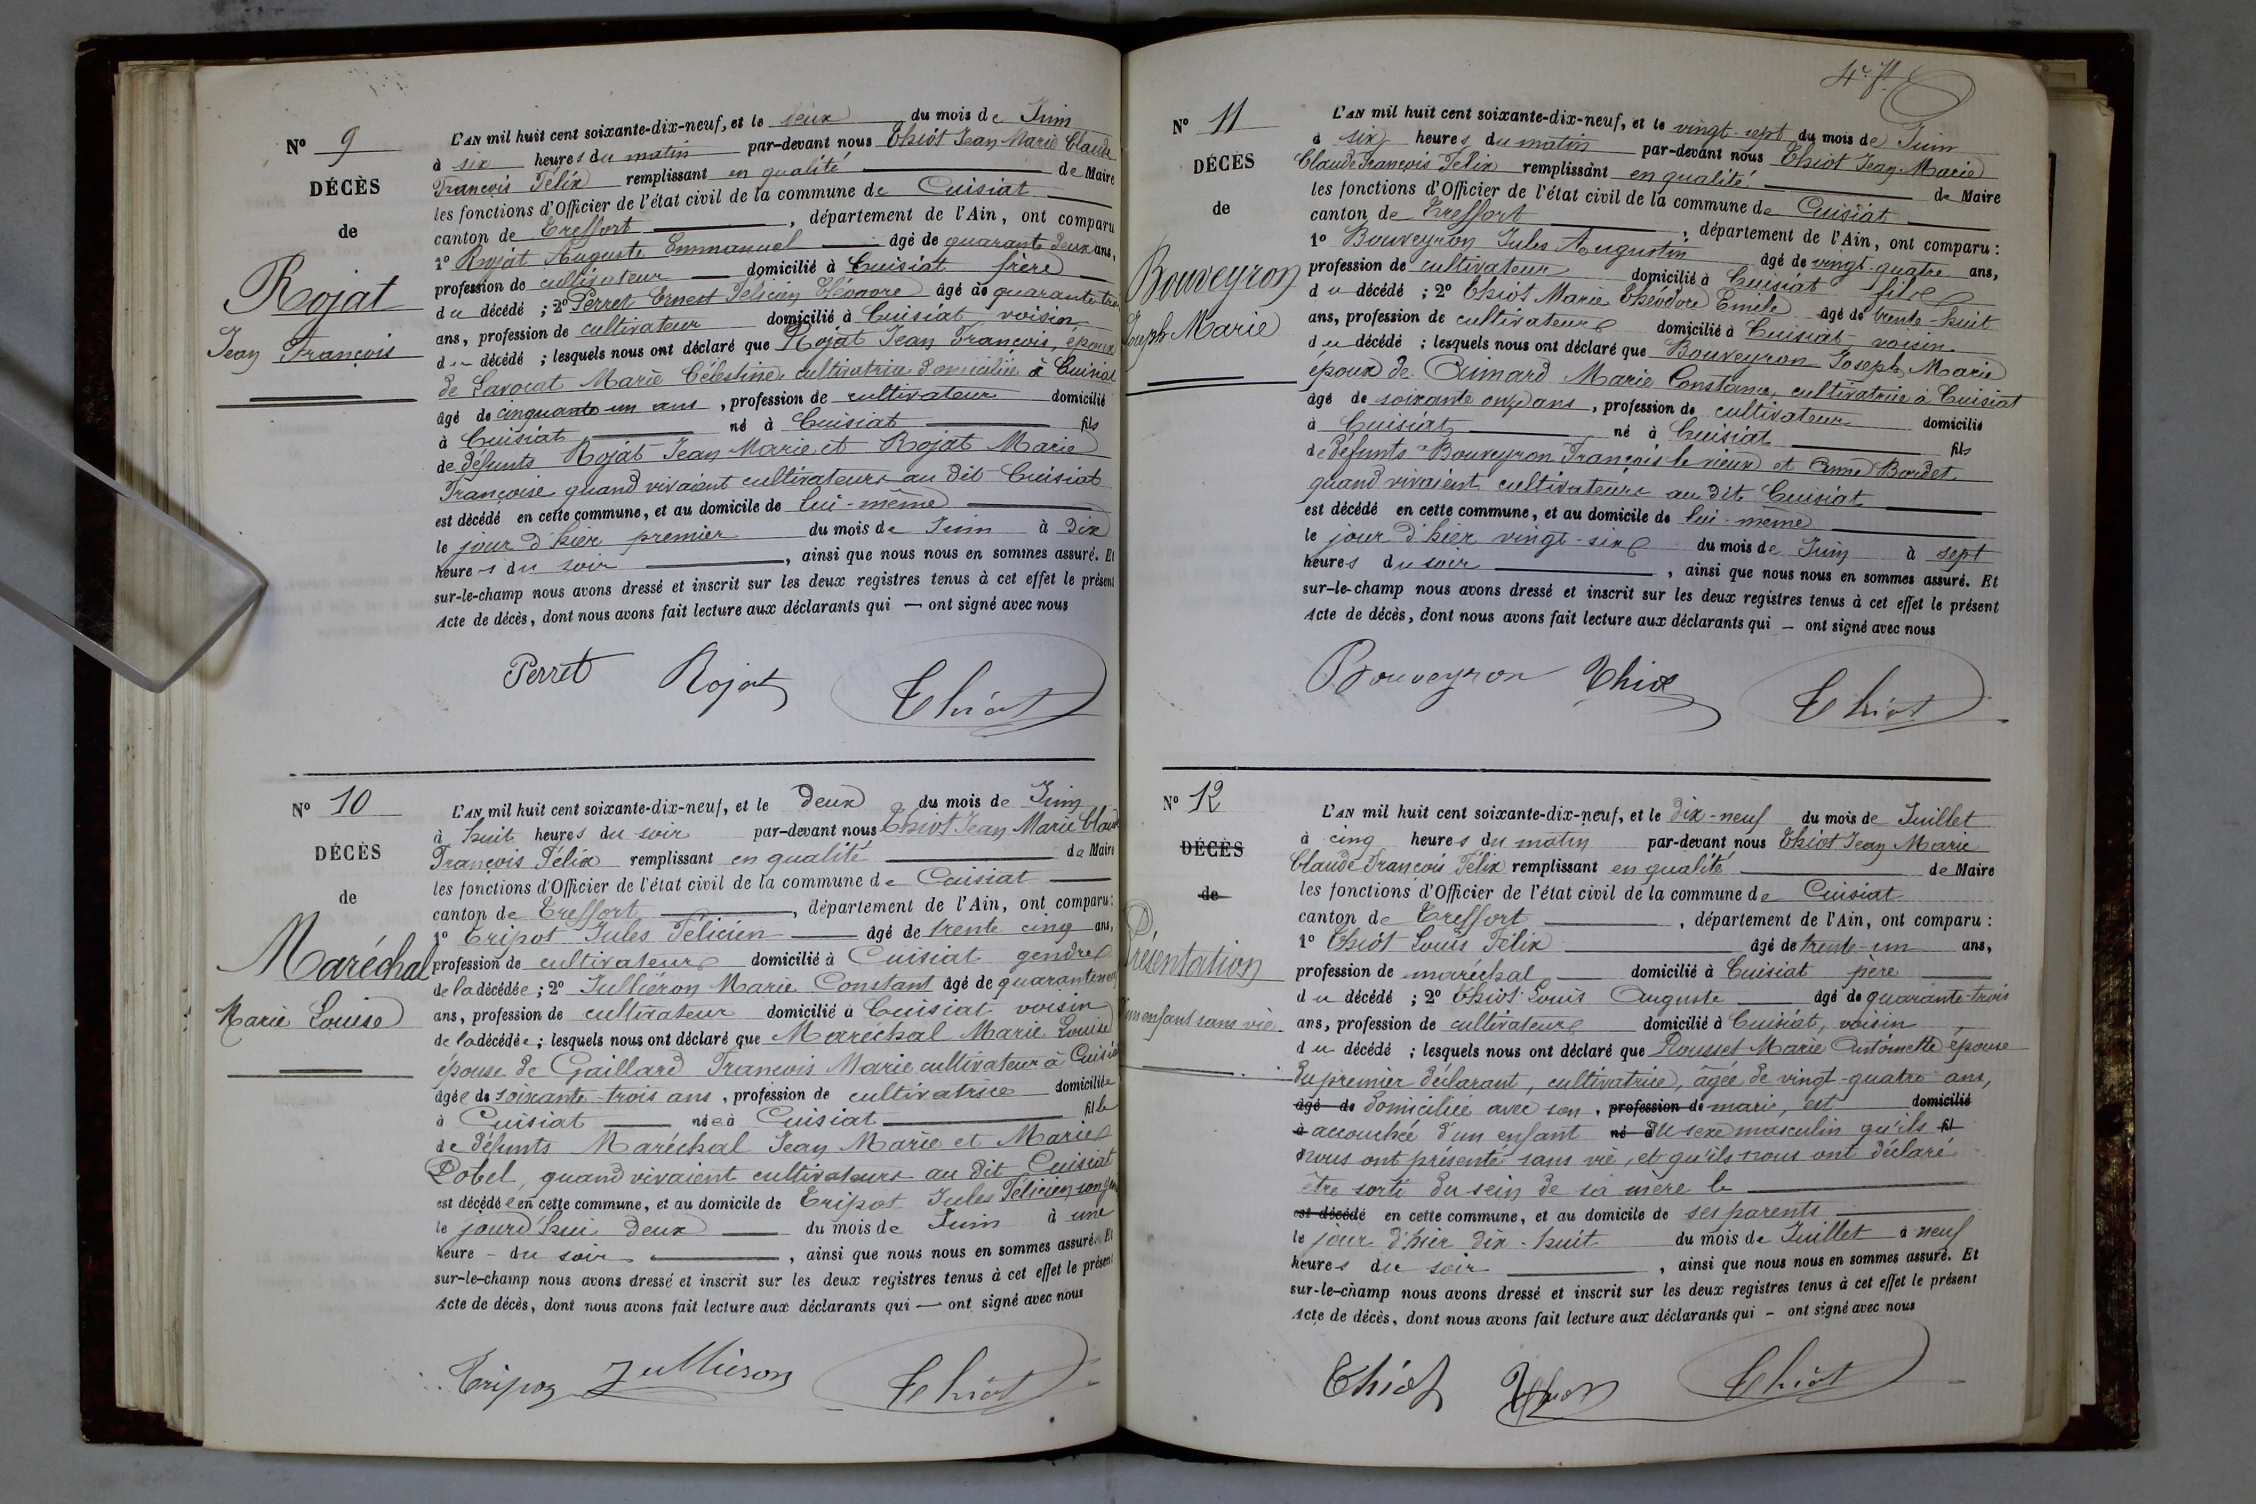 N° 9
DÉCÈS
de
Rojat
Jean François
L'AN mil huit cent soixante-dix-neuf, et le deux du mois de Juin
à six heures du matin par-devant nous Thiot Jean Marie Claude
François Félix remplissant en qualité de Maire
les fonctions d'Officier de l'état civil de la commune de Cuisiat
canton de Treffort, département de l'Ain, ont comparu
1° Rojat Auguste Emmanuel âgé de quarante deux ans,
profession de cultivateur domicilié à Cuisiat frère
du décédé ; 2° Perret Ernest Félicien âgé de quarante trois
ans, profession de cultivateur domicilié à Cuisiat, voisin,
du décédé ; lesquels nous ont déclaré que Rojat Jean François, époux
de Lavocat Marie Célestine, cultivatrice domiciliée à Cuisiat
âgé de cinquante un ans, profession de cultivateur domicilié
à Cuisiat né à Cuisiat fils
de défunts Rojat Jean Marie et Rojat Marie
Françoise quand vivaient cultivateurs au dit Cuisiat
est décédé en cette commune, et au domicile de lui-même
le jour d'hier premier du mois de Juin à dix
heures du soir, ainsi que nous nous en sommes assuré. Et
sur-le-champ nous avons dressé et inscrit sur les deux registres tenus à cet effet le présent
Acte de décès, dont nous avons fait lecture aux déclarants qui — ont signé avec nous
Perret Rojat Thiot
N° 10
DÉCÈS
de
Maréchal
Marie Louise
L'AN mil huit cent soixante-dix-neuf, et le deux du mois de Juin
à huit heures du soir par-devant nous Thiot Jean Marie Claude
François Félix remplissant en qualité de Maire
les fonctions d'Officier de l'état civil de la commune de Cuisiat
canton de Treffort, département de l'Ain, ont comparu :
1° Tripot Jules Félicien âgé de trente cinq ans,
profession de cultivateur domicilié à Cuisiat gendre
de la décédée ; 2° Julliéron Marie Constant âgé de quarante neuf
ans, profession de cultivateur domicilié à Cuisiat voisin
de la décédée ; lesquels nous ont déclaré que Maréchal Marie Louise
épouse de Gaillard François Marie cultivateur à Cuisiat
âgée de soixante-trois ans, profession de cultivatrice domiciliée
à Cuisiat née à Cuisiat fille
de défunts Maréchal Jean Marie et Marie
Pobel, quand vivaient cultivateurs au dit Cuisiat
est décédée en cette commune, et au domicile de Tripot Jules Félicien son gendre
le jourd'hui deux du mois de Juin à une
heure - du soir, ainsi que nous nous en sommes assuré. Et
sur-le-champ nous avons dressé et inscrit sur les deux registres tenus à cet effet le présent
Acte de décès, dont nous avons fait lecture aux déclarants qui — ont signé avec nous
Tripoz Jullieron Thiot
N° 11
DÉCÈS
de
Bouveyron
Joseph Marie
L'AN mil huit cent soixante-dix-neuf, et le vingt-sept du mois de Juin
à six heures du matin par-devant nous Thiot Jean Marie
Claude François Félix remplissant en qualité de Maire
les fonctions d'Officier de l'état civil de la commune de Cuisiat
canton de Treffort, département de l'Ain, ont comparu :
1° Bouveyron Jules Augustin âgé de vingt-quatre ans,
profession de cultivateur domicilié à Cuisiat fils
du décédé ; 2° Thiot Marie Théodore Emile âgé de trente-huit
ans, profession de cultivateur domicilié à Cuisiat, voisin
du décédé ; lesquels nous ont déclaré que Bouveyron Joseph Marie
époux de Marie Constance, cultivatrice à Cuisiat
âgé de soixante onze ans, profession de cultivateur domicilié
à Cuisiat né à Cuisiat fils
de défunts Bouveyron François le vieux et Anne Bordet
quand vivaient cultivateurs au dit Cuisiat
est décédé en cette commune, et au domicile de lui-même
le jour d'hier vingt-six du mois de Juin à sept
heures du soir, ainsi que nous nous en sommes assuré. Et
sur-le-champ nous avons dressé et inscrit sur les deux registres tenus à cet effet le présent
Acte de décès, dont nous avons fait lecture aux déclarants qui — ont signé avec nous
Bouveyron Thiot Thiot
N° 12
DÉCÈS
de
Présentation
d'un enfant sans vie
L'AN mil huit cent soixante-dix-neuf, et le dix-neuf du mois de Juillet
à cinq heures du matin par-devant nous Thiot Jean Marie
Claude François Félix remplissant en qualité de Maire
les fonctions d'Officier de l'état civil de la commune de Cuisiat
canton de Treffort, département de l'Ain, ont comparu :
1° Thiot Louis Félix âgé de trente-un ans,
profession de maréchal domicilié à Cuisiat père
du décédé ; 2° Thiot Louis Auguste âgé de quarante-trois
ans, profession de cultivateur domicilié à Cuisiat, voisin
du décédé ; lesquels nous ont déclaré que Rousset Marie Antoinette épouse
du premier déclarant, cultivatrice, âgée de vingt-quatre ans,
âgé de domiciliée avec son, profession de mari, est domicilié
à accouchée d'un enfant né à du sexe masculin qu'ils fil
nous ont présenté sans vie, et qu'ils nous ont déclaré
être sorti du sein de sa mère le
est décédé en cette commune, et au domicile de ses parents
le jour d'hier dix-huit du mois de Juillet à neuf
heures du soir, ainsi que nous nous en sommes assuré. Et
sur-le-champ nous avons dressé et inscrit sur les deux registres tenus à cet effet le présent
Acte de décès, dont nous avons fait lecture aux déclarants qui — ont signé avec nous
Thiot Thiot